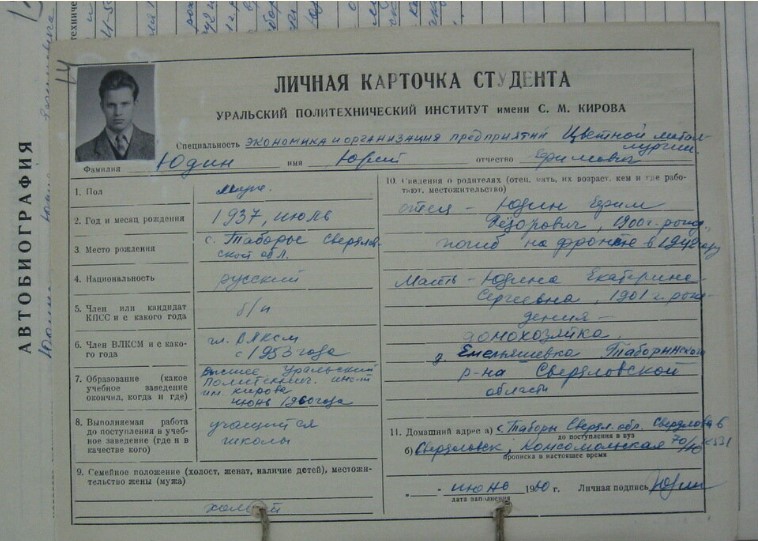 АВТОБИОГРАФИЯ
ЛИЧНАЯ КАРТОЧКА СТУДЕНТА
УРАЛЬСКИЙ ПОЛИТЕХНИЧЕСКИЙ ИНСТИТУТ имени С. М. КИРОВА
Специальность экономика и организация предприятий Цветной метал-
лургии
Фамилия Юдин имя Юрий отчество Ефимович
1. Пол муж.
2. Год и месяц рождения 1937, июль
3. Место рождения с. Таборы Свердлов-
ской обл.
4. Национальность русский
5. Член или кандидат
КПСС и с какого года б/п
6. Член ВЛКСМ и с како-
го года чл. ВЛКСМ
с 1953 года
7. Образование (какое
учебное заведение
окончил, когда и где)
высшее Уральский
Политехнич. инст
им. Кирова
июнь 1960 года
8. Выполняемая работа
до поступления в учеб-
ное заведение (где и в
качестве кого)
учащийся
школы
9. Семейное положение (холост, женат, наличие детей), местожи-
тельство жены (мужа)
холост
10. Сведения о родителях (отец, мать, их возраст, кем и где рабо-
тают, местожительство)
отец - Юдин Ефим
Фёдорович, 1900 г. рожд.,
погиб на фронте в 1942 году
Мать - Юдина Екатерина
Сергеевна, 1901 г. рож-
дения -
домохозяйка
д. Емельяшевка Таборинского
р-на Свердловской
области
11. Домашний адрес а) с. Таборы Свердл. обл.
до поступления в вуз
б) Свердловск, Комсомольская 70
прописка в настоящее время
" - " июнь 1960 г. Личная подпись Юдин
дата заполнения